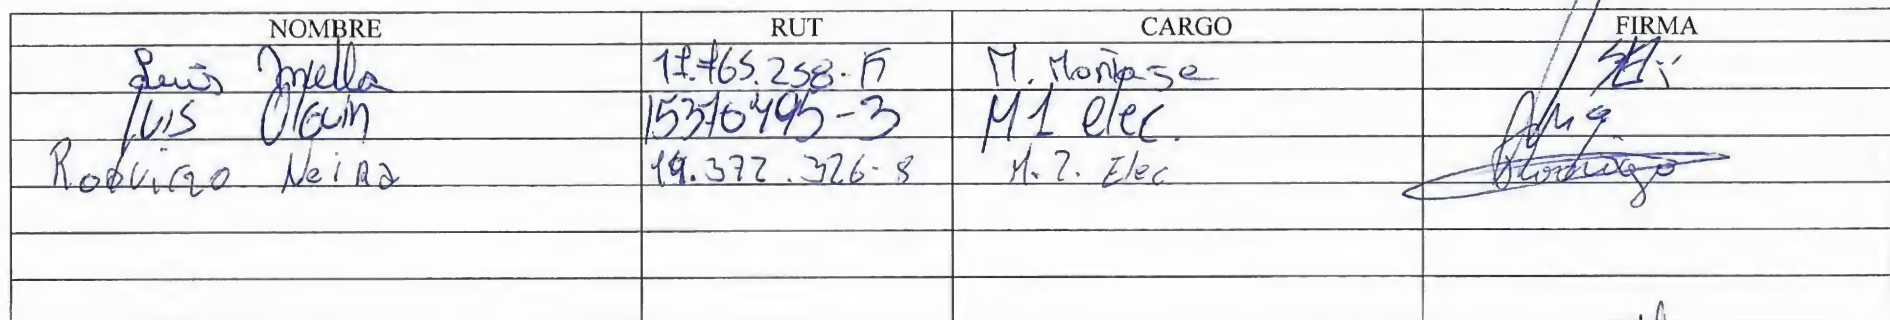 NOMBRE RUT CARGO FIRMA
Luis M. Montaje
Luis Olguin 15310495-3 M1 elec.
Rodrigo Neira 19.372.326-8 M. 2. Elec Rodrigo